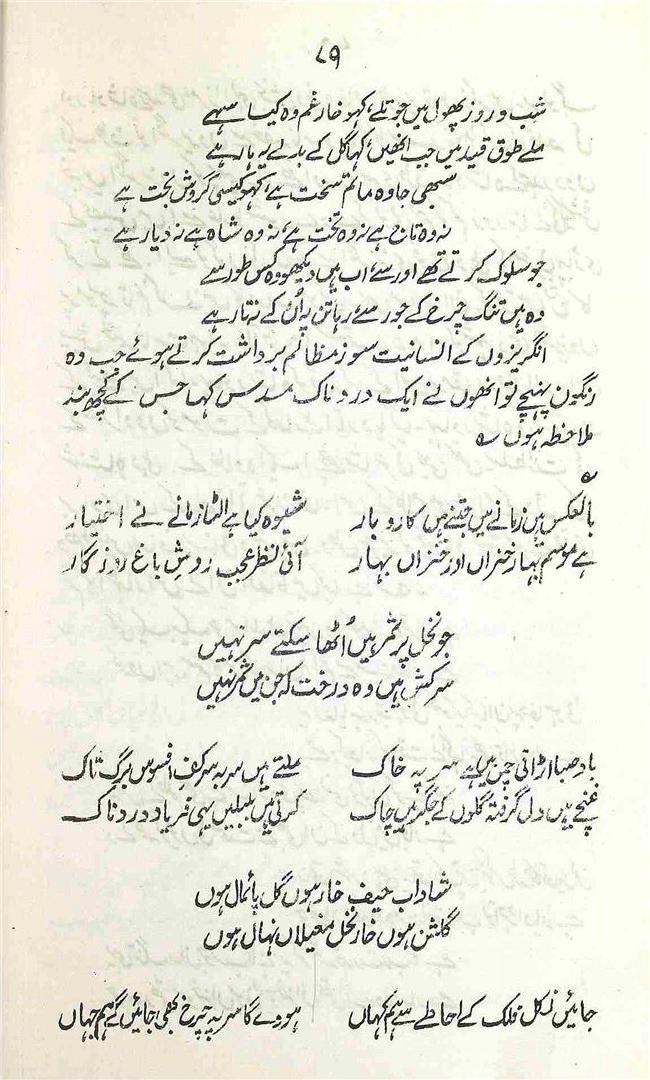 ۷۹
شب و روز پھول میں جو تلے، کہو خارِ غم وہ کیا سہے
ملے طوق قید میں جب انھیں، کہا گل کے بدلے یہ ہار ہے
سبھی جا وہ ماتم سخت ہے، کہو کیسی گردشِ بخت ہے
نہ وہ تاج ہے نہ وہ تخت ہے، نہ وہ شاہ ہے نہ دیار ہے
جو سلوک کرتے تھے اور سے، اب ہیں دیکھو وہ کس طور سے
وہ ہیں تنگ چرخ کے جور سے، رہا تن پہ اُن کے نہ تار ہے
انگریزوں کے انسانیت سوز مظالم برداشت کرتے ہوئے جب وہ
رنگون پہنچے تو انھوں نے ایک دردناک مسدس کہا جس کے کچھ بند
ملاحظہ ہوں ؎
؎
بالعکس ہیں زمانے میں جتنے ہیں کاروبار شیوہ کیا ہے الٹا زمانے نے اختیار
ہے موسم بہار خزاں اور خزاں بہار آئی نظر عجب روشِ باغ روزگار
جو نخل پر ثمر ہیں اُٹھا سکتے سر نہیں
سرکش ہیں وہ درخت کہ جن میں ثمر نہیں
باد صبا اڑاتی چمن میں ہے سر پہ خاک ملتے ہیں سر بہ سر کفِ افسوس برگِ تاک
غنچے ہیں دل گرفتہ گلوں کے جگر ہیں چاک کرتی ہیں بلبلیں یہی فریاد دردناک
شاداب حیف خار ہوں گل پائمال ہوں
گلشن ہوں خار نخل مغیلاں نہال ہوں
جائیں نکل فلک کے احاطے سے ہم کہاں ہووے گا سر پہ چرخ بھی جائیں گے ہم جہاں